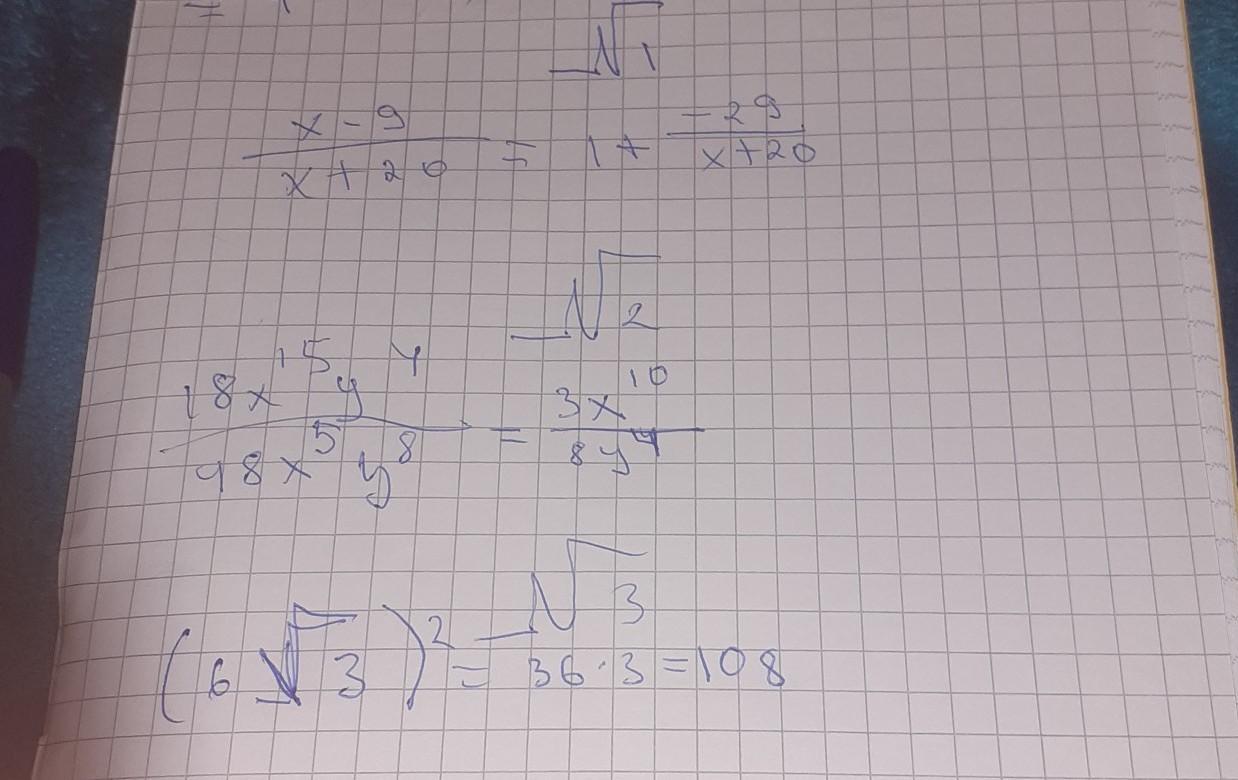 =
√1
x - 9 / x + 20 = 1 + -29 / x+20
√2
18x^15 y^4 / 48x^5 y^8 = 3x^10 / 8y^4
√3
(6√3)^2 = 36·3 = 108